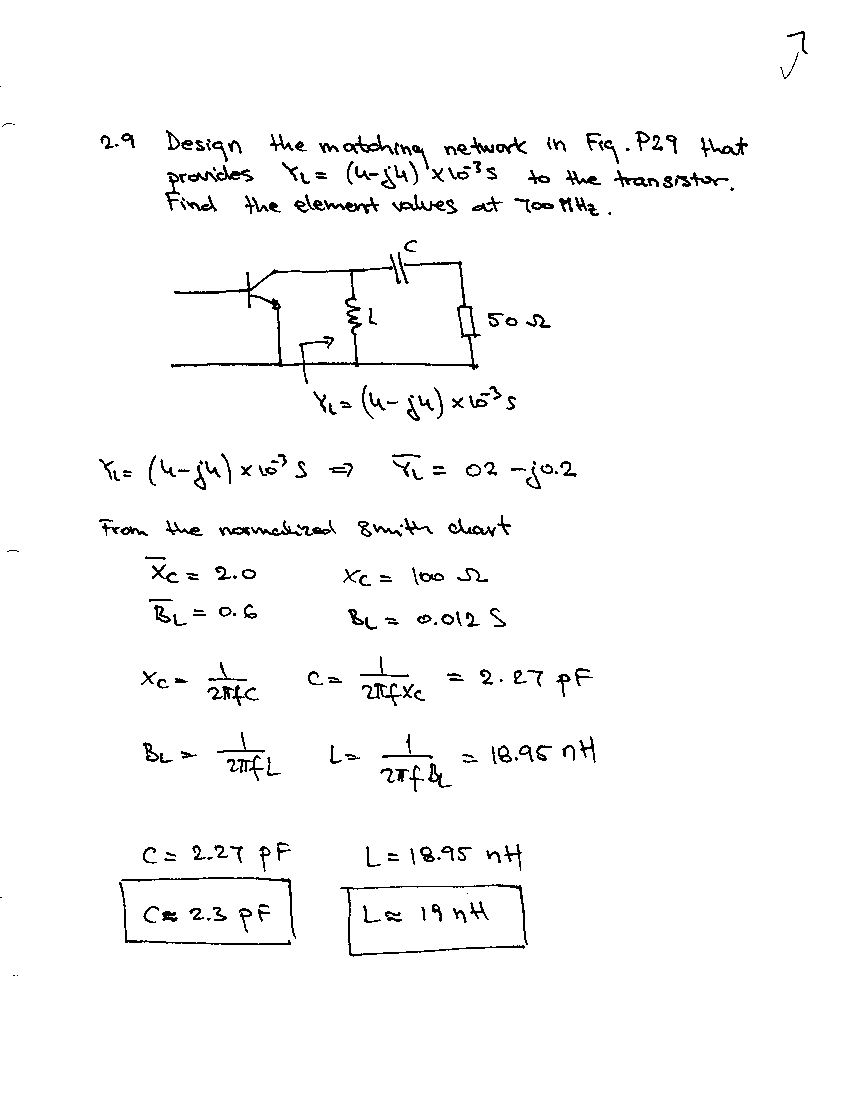 7
2.9 Design the matching network in Fig. P29 that
provides YL = (4-j4) x10^-3 S to the transistor.
Find the element values at 700 MHz.
C
L
50 Ω
YL = (4-j4) x10^-3 S
YL = (4-j4) x 10^-3 S ⇒ Y̅L = 02 -j0.2
From the normalized Smith chart
X̅C = 2.0 XC = 100 Ω
B̅L = 0.6 BL = 0.012 S
XC = 1/2πfC C = 1/2πfXC = 2.27 pF
BL = 1/2πfL L = 1/2πfBL = 18.95 nH
C = 2.27 pF L = 18.95 nH
C ≈ 2.3 pF L ≈ 19 nH